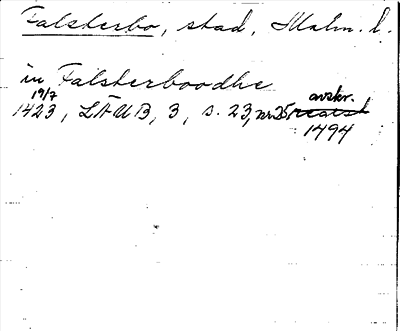 Falsterbo, stad, Malm. l.
in Falsterboodhe
19/7 avskr.
1423, LÄUB, 3, s. 23, nr 25
1494